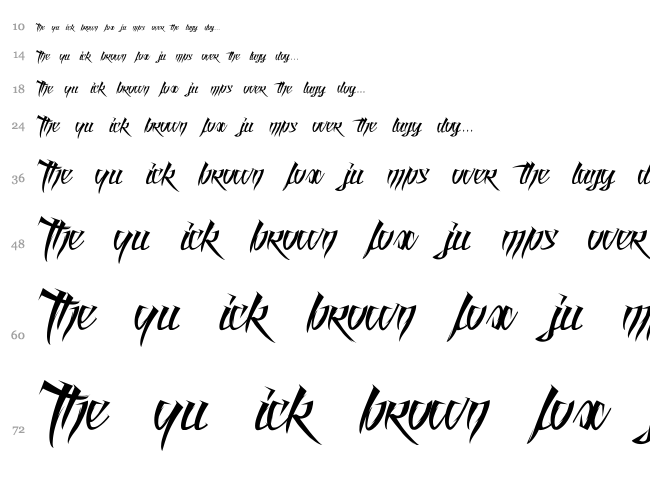 10 The qu ick brown fox ju mps over the lazy dog...
14 The qu ick brown fox ju mps over the lazy dog...
18 The qu ick brown fox ju mps over the lazy dog...
24 The qu ick brown fox ju mps over the lazy dog...
36 The qu ick brown fox ju mps over the lazy d
48 The qu ick brown fox ju mps over
60 The qu ick brown fox ju m
72 The qu ick brown fox